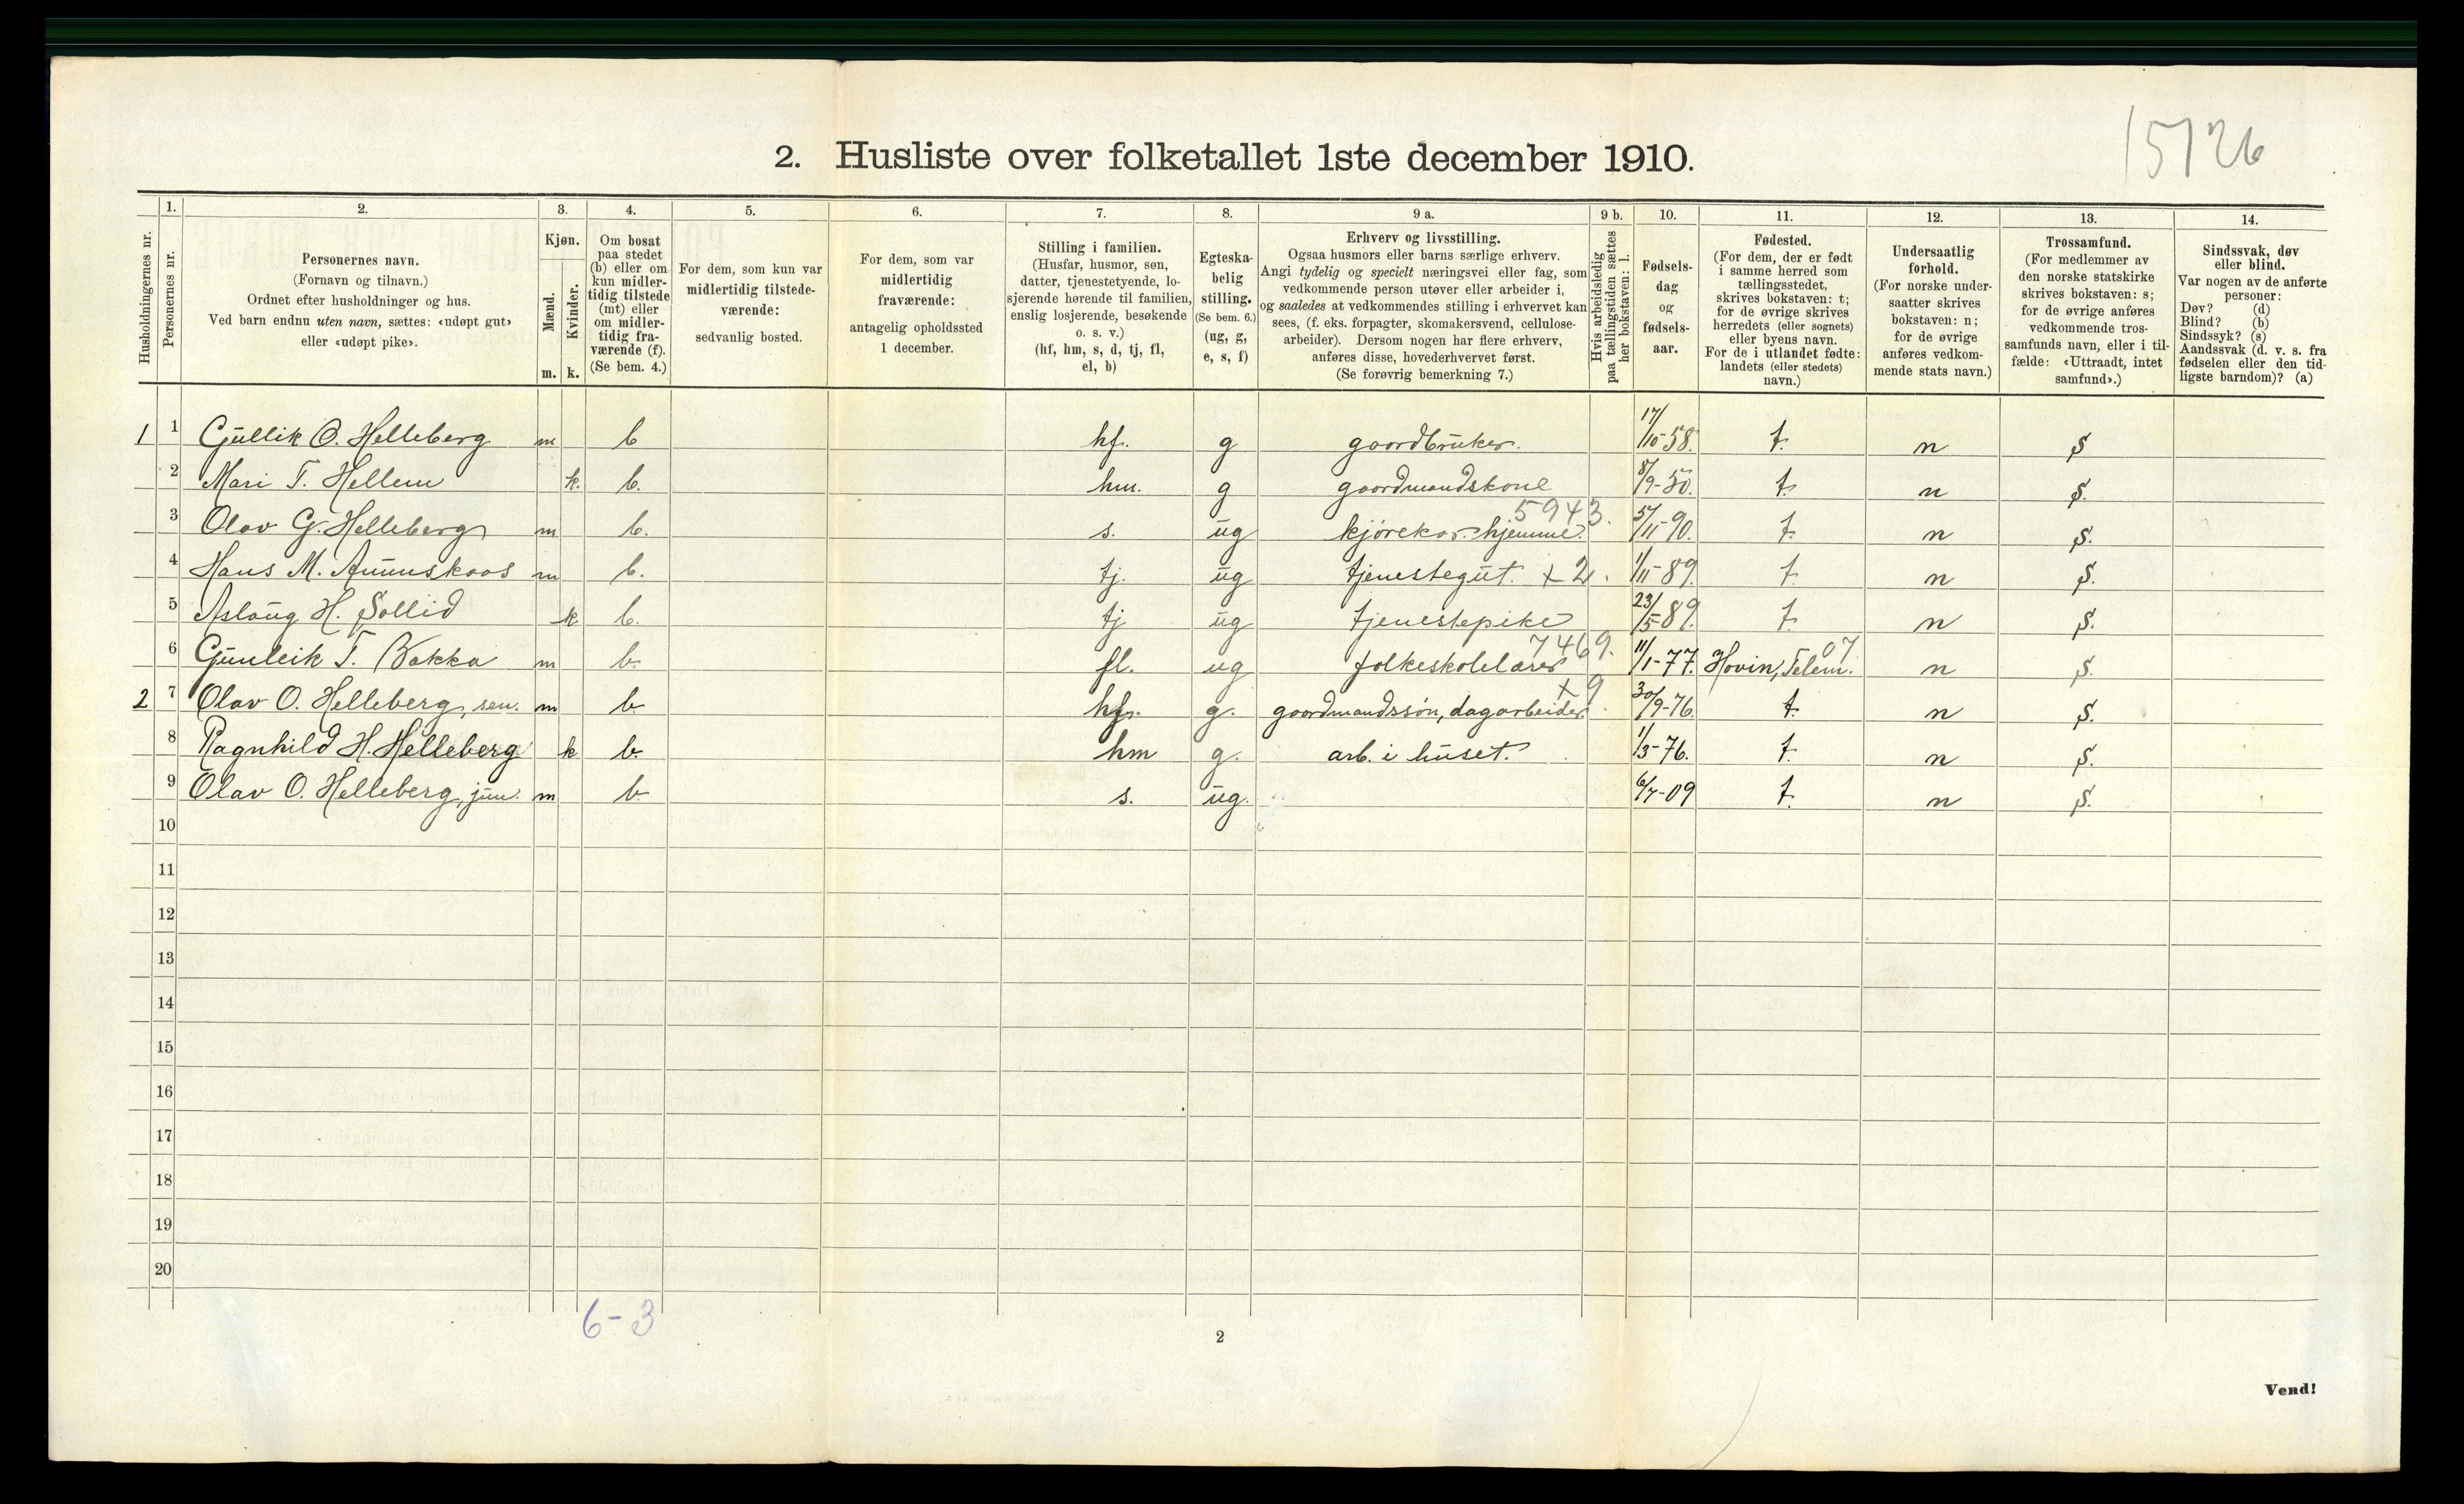 15726
2. Husliste over folketallet 1ste december 1910.
Husholdningernes nr.
1. Personernes nr.
2. Personernes navn. (Fornavn og tilnavn.) Ordnet efter husholdninger og hus. Ved barn endnu uten navn, sættes: «udøpt gut» eller «udøpt pike».
3. Kjøn. Mænd. m. Kvinder. k.
4. Om bosat paa stedet (b) eller om kun midlertidig tilstede (mt) eller om midlertidig fraværende (f). (Se bem. 4.)
5. For dem, som kun var midlertidig tilstedeværende: sedvanlig bosted.
6. For dem, som var midlertidig fraværende: antagelig opholdssted 1 december.
7. Stilling i familien. (Husfar, husmor, søn, datter, tjenestetyende, losjerende hørende til familien, enslig losjerende, besøkende o. s. v.) (hf, hm, s, d, tj, fl, el, b)
8. Egteskabelig stilling. (Se bem. 6.) (ug, g, e, s, f)
9 a. Erhverv og livsstilling. Ogsaa husmors eller barns særlige erhverv. Angi tydelig og specielt næringsvei eller fag, som vedkommende person utøver eller arbeider i, og saaledes at vedkommendes stilling i erhvervet kan sees, (f. eks. forpagter, skomakersvend, cellulosearbeider). Dersom nogen har flere erhverv, anføres disse, hovederhvervet først. (Se forøvrig bemerkning 7.)
9 b. Hvis arbeidsledig paa tællingstiden sættes her bokstaven: l.
10. Fødselsdag og fødselsaar.
11. Fødested. (For dem, der er født i samme herred som tællingsstedet, skrives bokstaven: t; for de øvrige skrives herredets (eller sognets) eller byens navn. For de i utlandet fødte: landets (eller stedets) navn.)
12. Undersaatlig forhold. (For norske undersaatter skrives bokstaven: n; for de øvrige anføres vedkommende stats navn.)
13. Trossamfund. (For medlemmer av den norske statskirke skrives bokstaven: s; for de øvrige anføres vedkommende trossamfunds navn, eller i tilfælde: «Uttraadt, intet samfund».)
14. Sindssvak, døv eller blind. Var nogen av de anførte personer: Døv? (d) Blind? (b) Sindssyk? (s) Aandssvak (d. v. s. fra fødselen eller den tidligste barndom)? (a)
1 1 Gullik O. Helleberg m b hf. g gaardbruker. 17/10-58. t. n s
2 Mari T. Hellem k. b. hm. g gaardmandskone 8/9-50. t. n s.
3 Olav G. Helleberg m b. s. ug kjørekar hjemme. 5943. 5/11-90. t. n s.
4 Hans M. Anunskaas m b. tj. ug tjenestegut. x 2. 1/11-89. t. n s.
5 Aslaug H. Sollid k b. tj ug tjenestepike 23/5-89. t. n s.
6 Gunleik T. Bakka m b. fl. ug folkeskolelærer 7469. 11/1-77. Hovin, Telem. 07 n s.
2 7 Olav O. Helleberg, sen. m b. hf. g. gaardmandssøn, dagarbeider. x 9 30/9-76. t. n s.
8 Ragnhild H. Helleberg k b. hm g. arb. i huset. 1/3-76. t. n s.
9 Olav O. Helleberg, jun. m b. s. ug. 6/7-09 t. n s.
10
11
12
13
14
15
16
17
18
19
20
6-3
2
Vend!